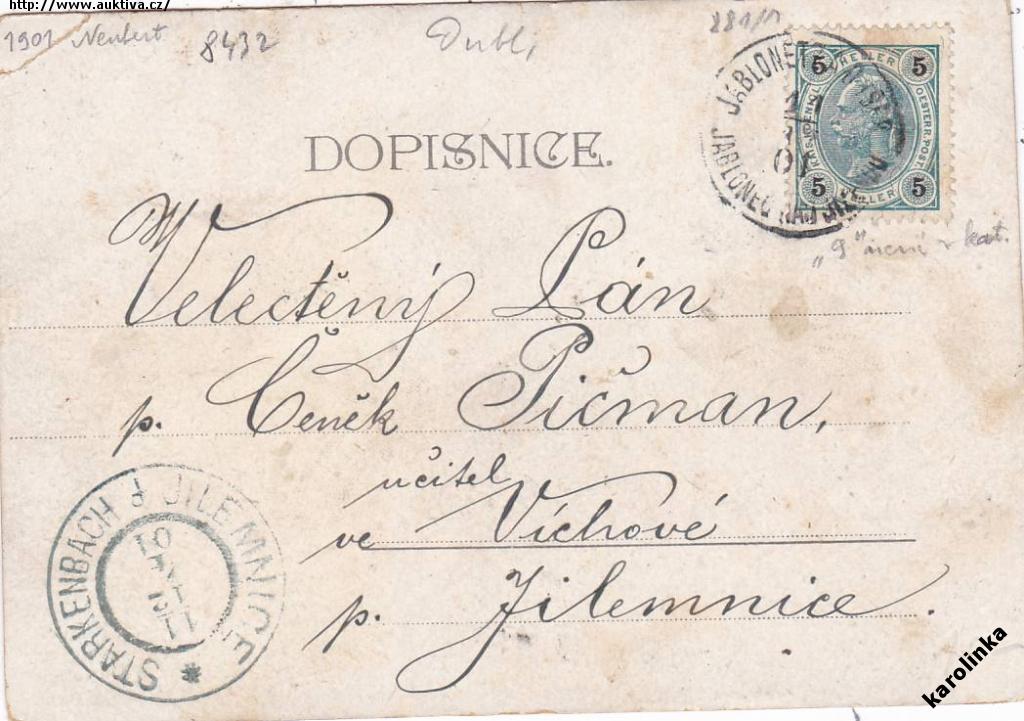 http://www.auktiva.cz/
1901 Neubert
8432
Dubl,
881/1
DOPISNICE.
JABLONEC
JABLONEC NAD JIZ
11
01
5 5
5 5
KAIS. KOENIGL. OESTERR. POST.
HELLER
HELLER
"9" není v kat.
Velectěný Pán
p. Čeněk Pičman,
učitel
ve Víchové
p. Jilemnice.
STARKENBACH JILEMNICE
11
01
karolinka